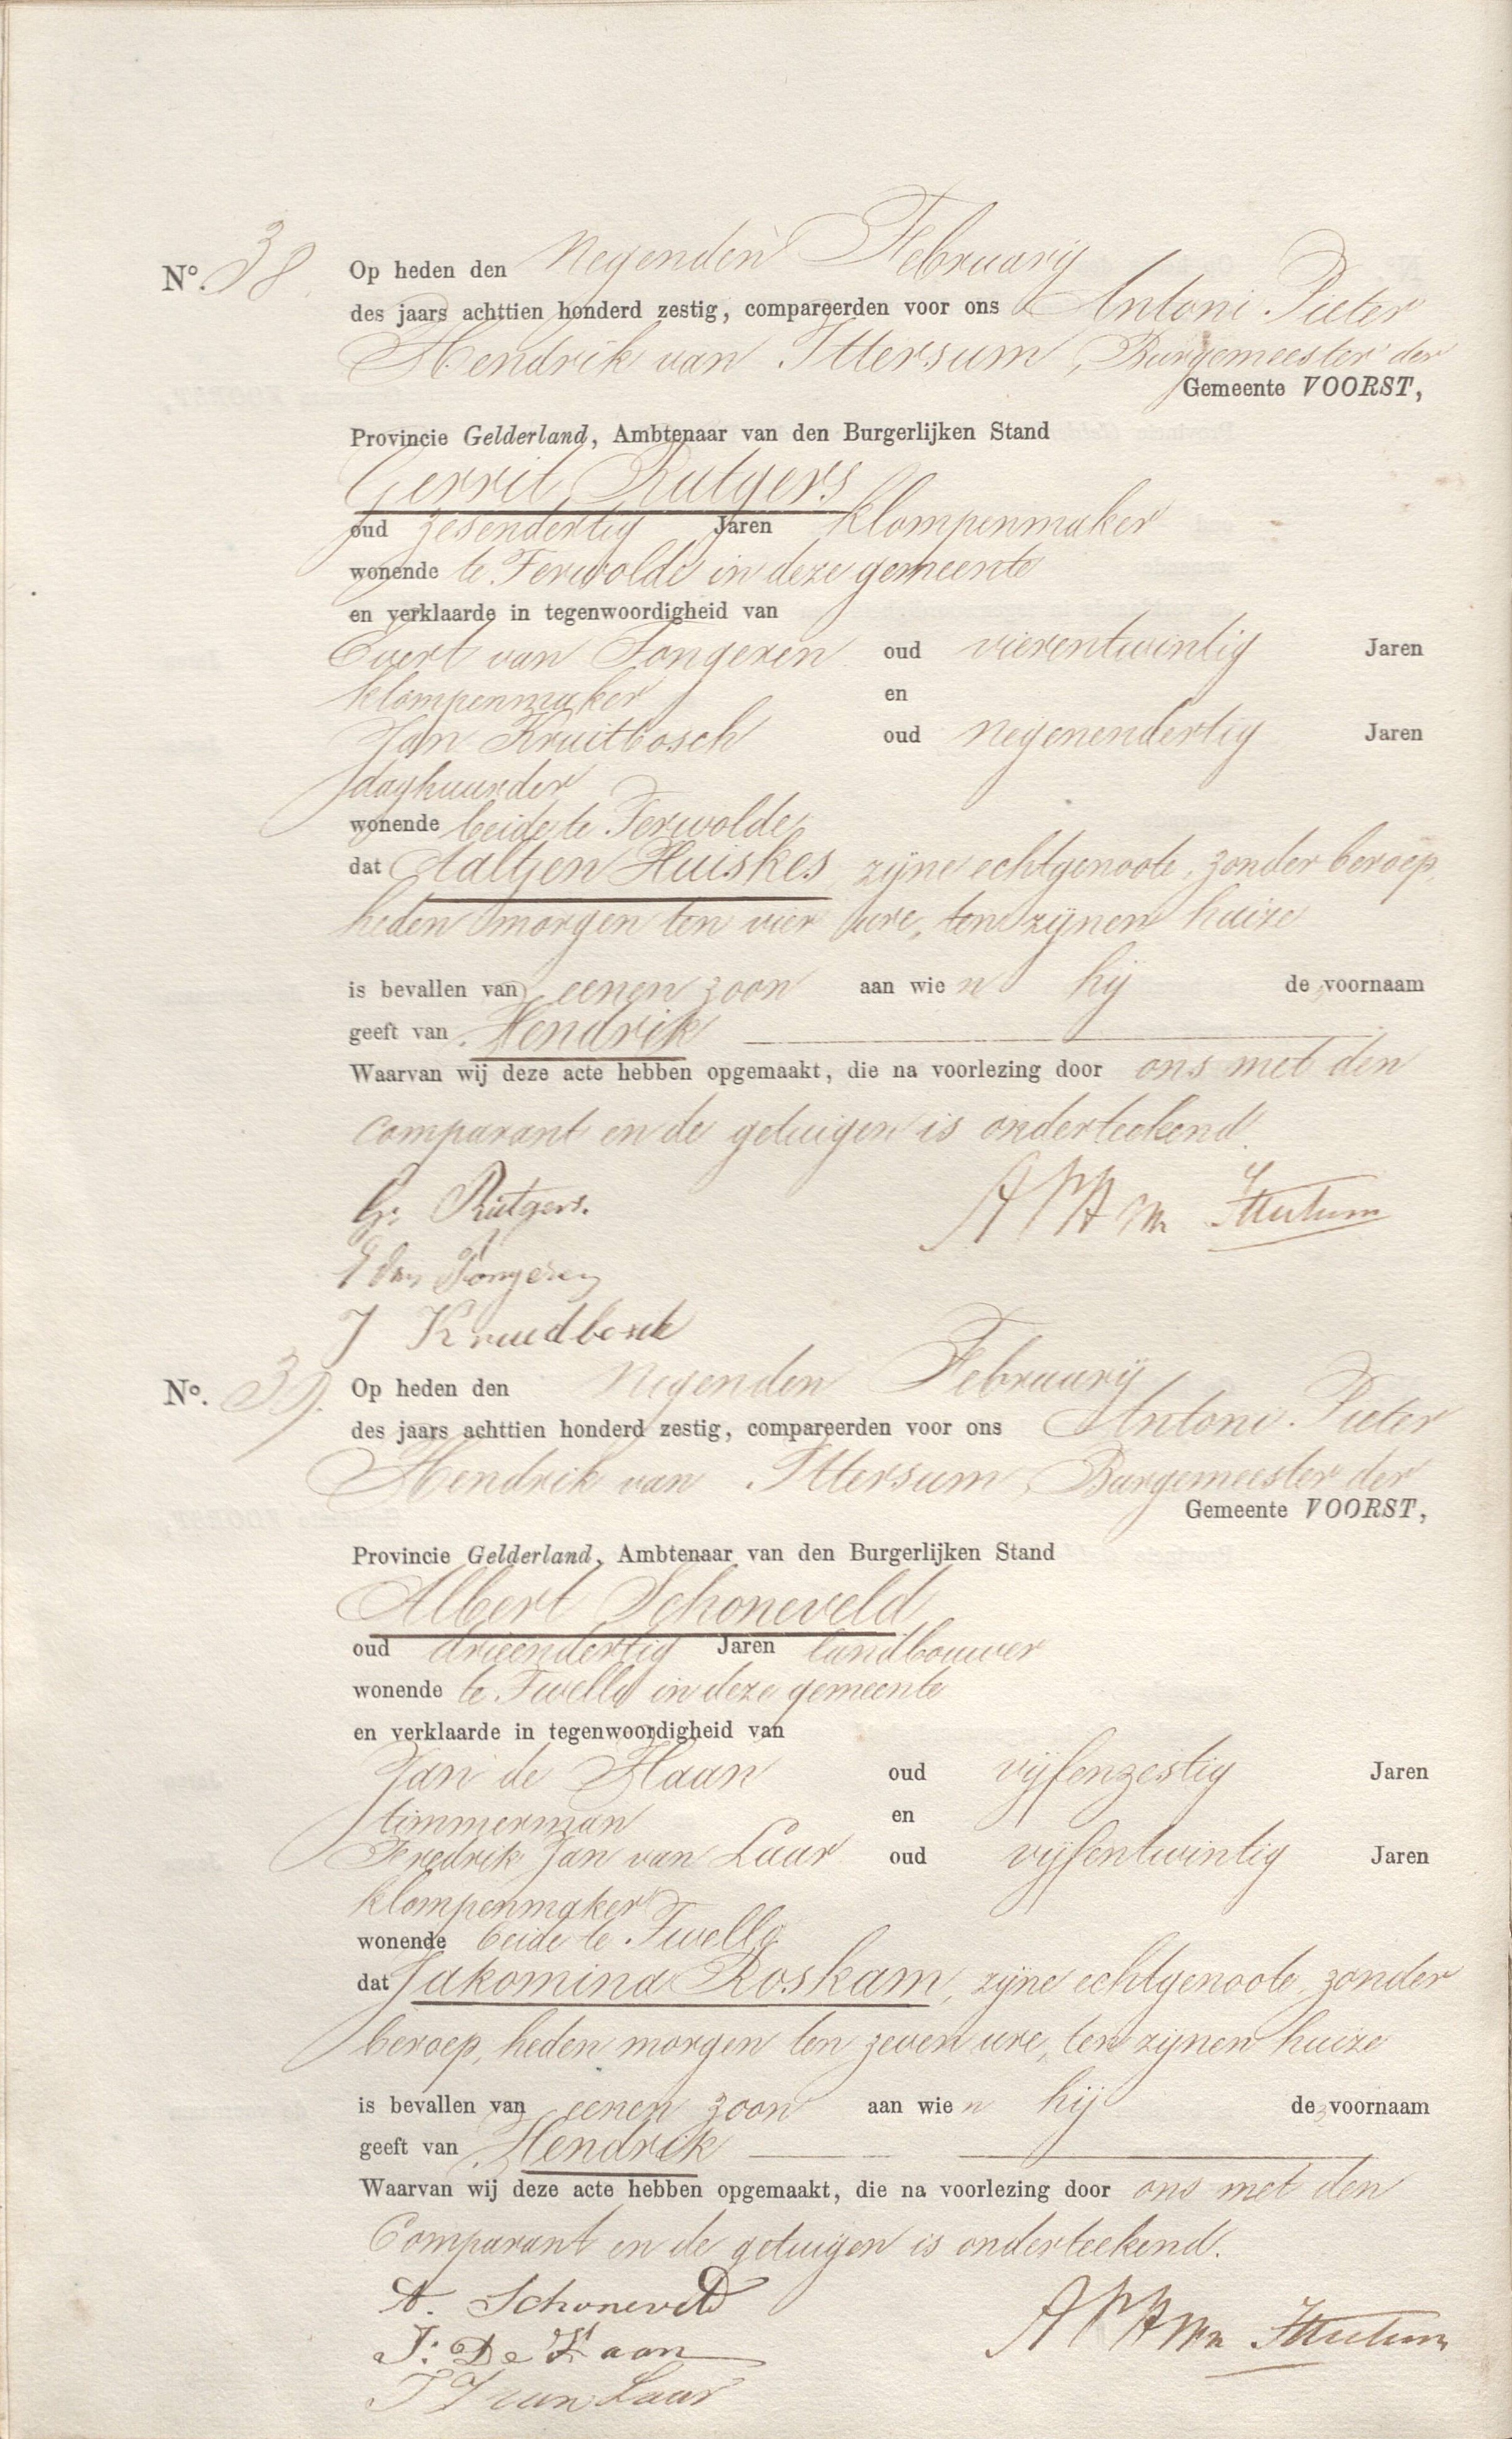 No. 38. Op heden den negenden February
des jaars achttien honderd zestig, compareerden voor ons Antoni Pieter
Hendrik van Ittersum, Burgemeester der
Gemeente VOORST,
Provincie Gelderland, Ambtenaar van den Burgerlijken Stand
Gerrit Rutgers
oud zesendertig Jaren klompenmaker
wonende te Terwolde in deze gemeente
en verklaarde in tegenwoordigheid van
Evert van Tongeren oud vierentwintig Jaren
klompenmaker en
Jan Kruitbosch oud negenendertig Jaren
daghuurder
wonende beide te Terwolde
dat Aaltjen Huiskes, zijne echtgenoote, zonder beroep,
heden morgen ten vier ure, ten zijnen huize
is bevallen van eenen zoon aan wien hij de voornaam
geeft van Hendrik
Waarvan wij deze acte hebben opgemaakt, die na voorlezing door ons met den
comparant en de getuigen is onderteekend.
G. Rutgers. APH van Ittersum
E van Tongeren
J Kruedbosch
No. 39. Op heden den negenden February
des jaars achttien honderd zestig, compareerden voor ons Antoni Pieter
Hendrik van Ittersum, Burgemeester der
Gemeente VOORST,
Provincie Gelderland, Ambtenaar van den Burgerlijken Stand
Albert Schoneveld
oud drieendertig Jaren landbouwer
wonende te Twello in deze gemeente
en verklaarde in tegenwoordigheid van
Jan de Haan oud vijfenzestig Jaren
timmerman en
Fredrik Jan van Laar oud vijfentwintig Jaren
klompenmaker
wonende beide te Twello
dat Jakomina Roskam, zijne echtgenoote, zonder
beroep, heden morgen ten zeven ure, ten zijnen huize
is bevallen van eenen zoon aan wien hij de voornaam
geeft van Hendrik
Waarvan wij deze acte hebben opgemaakt, die na voorlezing door ons met den
Comparant en de getuigen is onderteekend.
A. Schoneveld APH van Ittersum
J. De Haan
F J van Laar